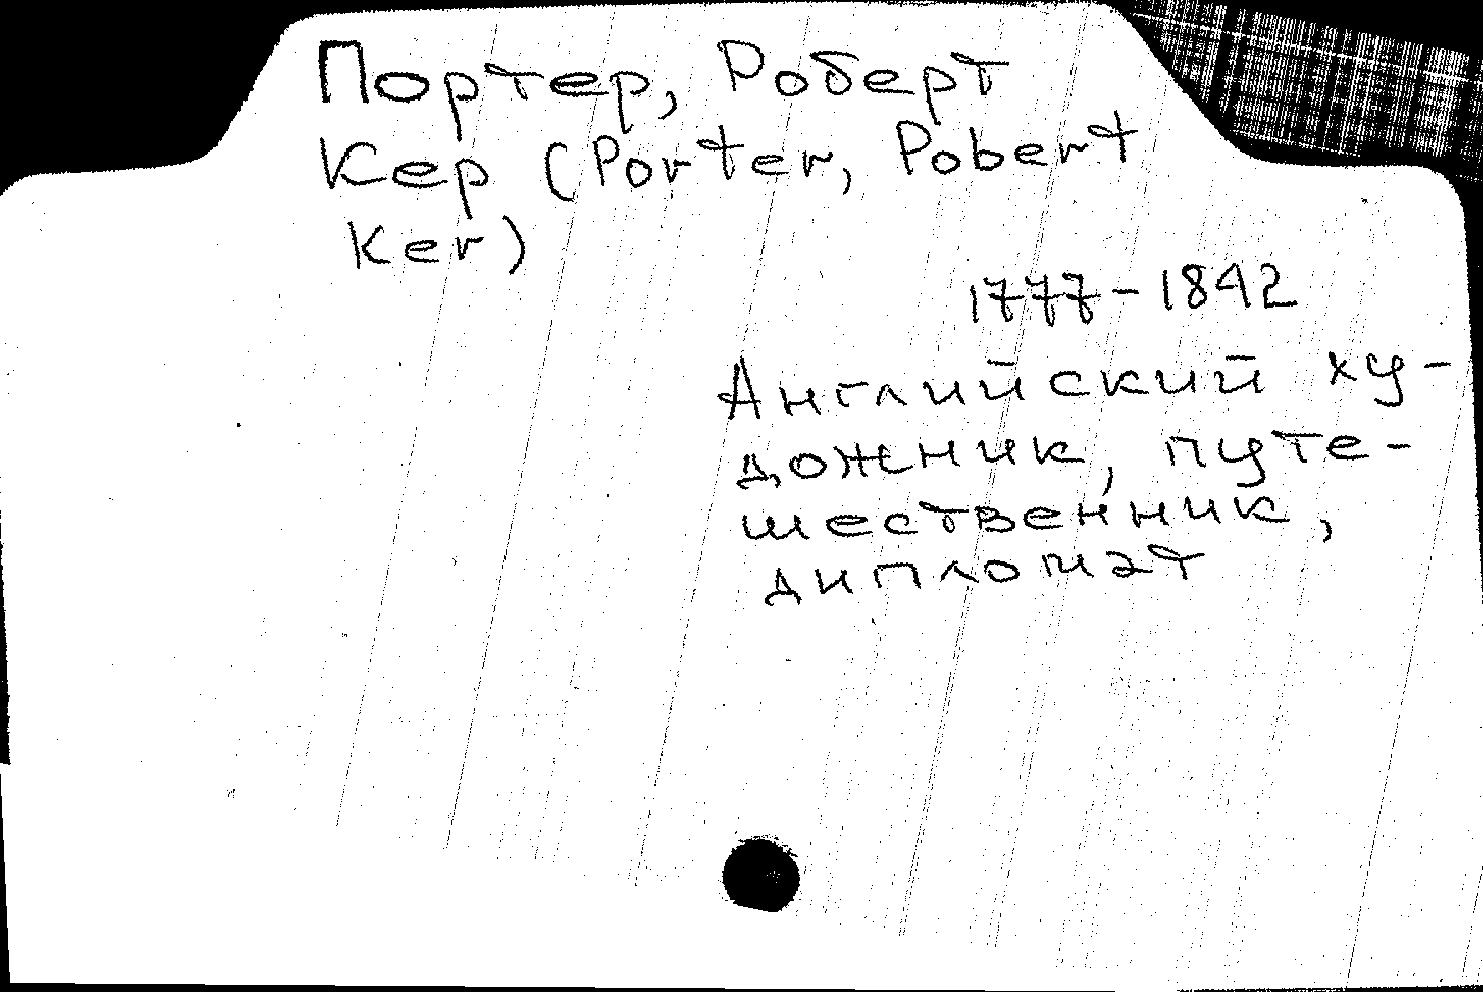 Портер, Роберт
Кер (Porter, Pobert
Ker)
1777-1842
Английский ху-
дожник, путе-
шественник,
дипломат